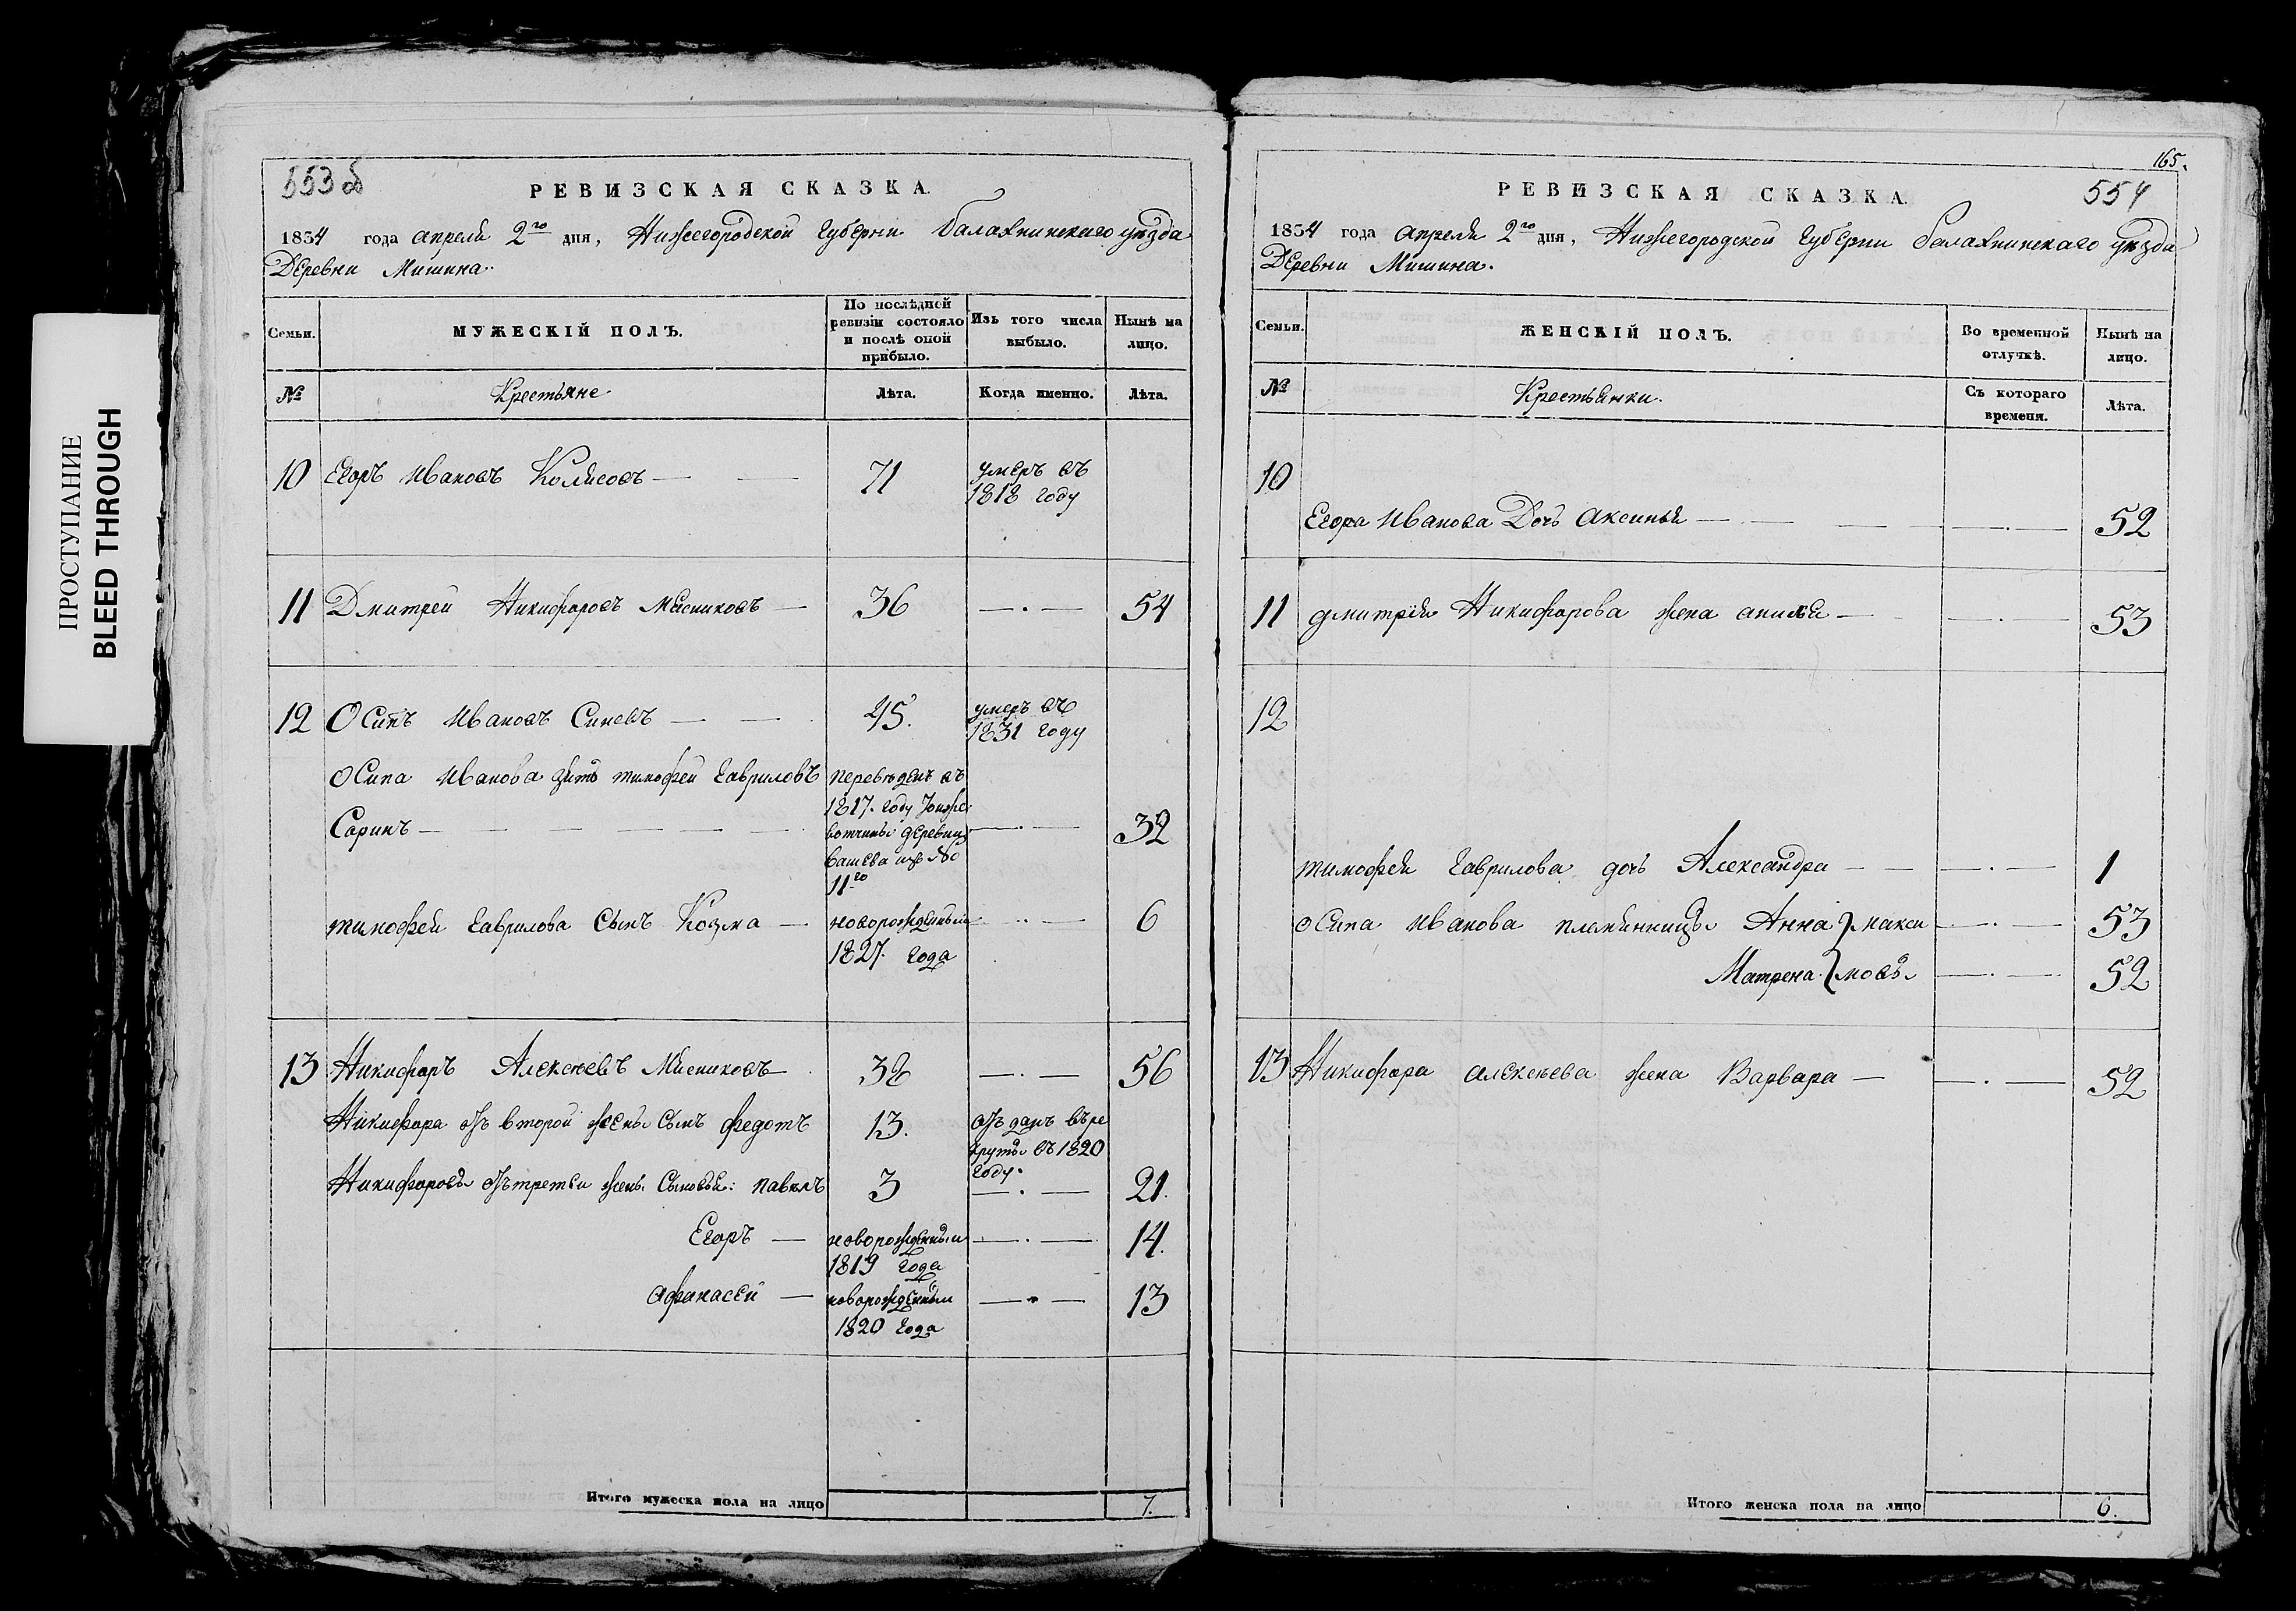 ПРОСТУПАНИЕ
BLEED THROUGH
553 об
РЕВИЗСКАЯ СКАЗКА.
1834 года апреля 2го дня, Нижегородской Губерни балахнинскаго уезда
Деревни Мишина.
Семьи. МУЖЕСКІЙ ПОЛЪ. По послѣдней ревизіи состояло и послѣ оной прибыло. Изъ того числа выбыло. Нынѣ на лицо.
№ Крестьяне Лѣта. Когда именно. Лѣта.
10 Егоръ Ивановъ 71 умеръ въ
1818 году
11 Дмитрей Никифоровъ Мясниковъ — 36 —.— 54
12 Осипъ Ивановъ Синевъ — 45. умеръ въ
1831 году
Осипа Иванова зять тимофей Гавриловъ переведенъ въ
1817. году
Соринъ — вотчины деревни —.— 32
11го
тимофея Гаврилова Сынъ Козма — новорожденный —.— 6
1827. года
13 Никифоръ Алексеевъ Мясниковъ — 38 —.— 56
Никифора отъ второй жены Сынъ федотъ 13. отъданъ въре
круты въ 1820
году.
Никифоровы отътретьи жены Сыновья: павелъ 3 —.— 21.
Егоръ — новорожденный —.— 14.
1819 года
Афанасей — новорожденный —.— 13
1820 года
Итого мужеска пола на лицо 7.
165.
РЕВИЗСКАЯ СКАЗКА.
554
1834 года апреля 2го дня, Нижегородской Губерни балахнинскаго уезда
Деревни Мишина.
Семьи. ЖЕНСКІЙ ПОЛЪ. Во временной отлучкѣ. Нынѣ на лицо.
№ Крестьянки. Съ котораго времени. Лѣта.
10
Егора Иванова Дочь Аксинья — —.— 52
11 Дмитрея Никифорова жена — —.— 53
12
тимофея Гаврилова дочь Александра — —.— 1
Осипа Иванова племянницы Анна } макси —.— 53
Матрена } мовы —.— 52
13 Никифора алексеева жена Варвара — —.— 52
Итого женска пола на лицо 6.